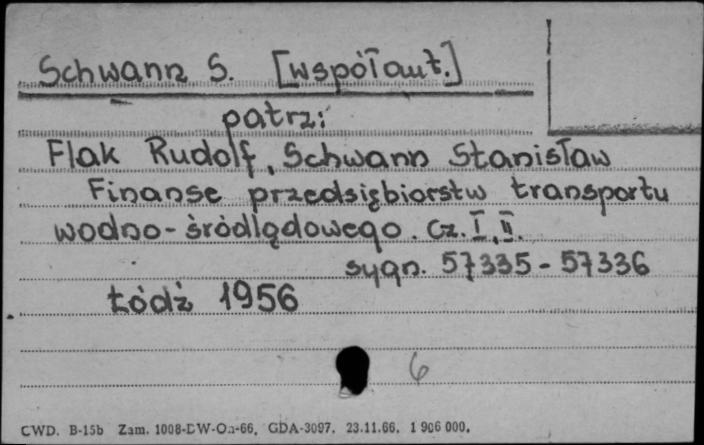 Schwann S. [współaut.]
patrz:
Flak Rudolf, Schwann Stanisław
Finanse przedsiębiorstw transportu
wodno-śródlądowego. Cz. I, II.
sygn. 57335-57336
Łódź 1956
6
CWD. B-15b Zam. 1008-DW-Oa-66. GDA-3097. 23.11.66. 1 906 000.